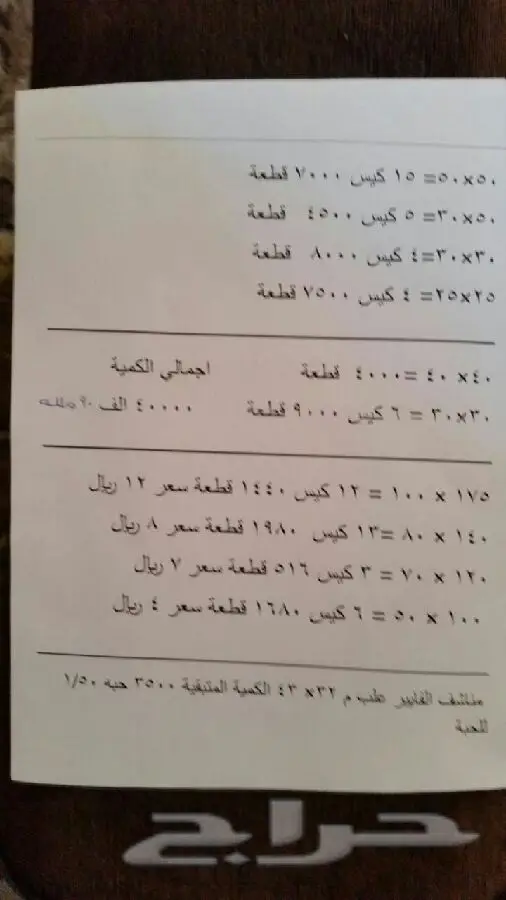 ٥٠×٥٠= ١٥ كيس ٧٠٠٠ قطعة
٥٠×٣٠= ٥ كيس ٤٥٠٠ قطعة
٣٠×٣٠=٤ كيس ٨٠٠٠ قطعة
٢٥×٢٥= ٤ كيس ٧٥٠٠ قطعة
٤٠× ٤٠ =٤٠٠٠ قطعة
اجمالي الكمية
٣٠×٣٠ = ٦ كيس ٩٠٠٠ قطعة
٤٠٠٠٠ الف ٩٠
١٧٥ × ١٠٠ = ١٢ كيس ١٤٤٠ قطعة سعر ١٢ ريال
١٤٠ × ٨٠ =١٣ كيس ١٩٨٠ قطعة سعر ٨ ريال
١٢٠ × ٧٠ = ٣ كيس ٥١٦ قطعة سعر ٧ ريال
١٠٠ × ٥٠ = ٦ كيس ١٦٨٠ قطعة سعر ٤ ريال
مناشف الفايبر طب م ٣٢× ٤٣ الكمية المتبقية ٣٥٠٠ حبه ١/٥٠
للحبة
حراج